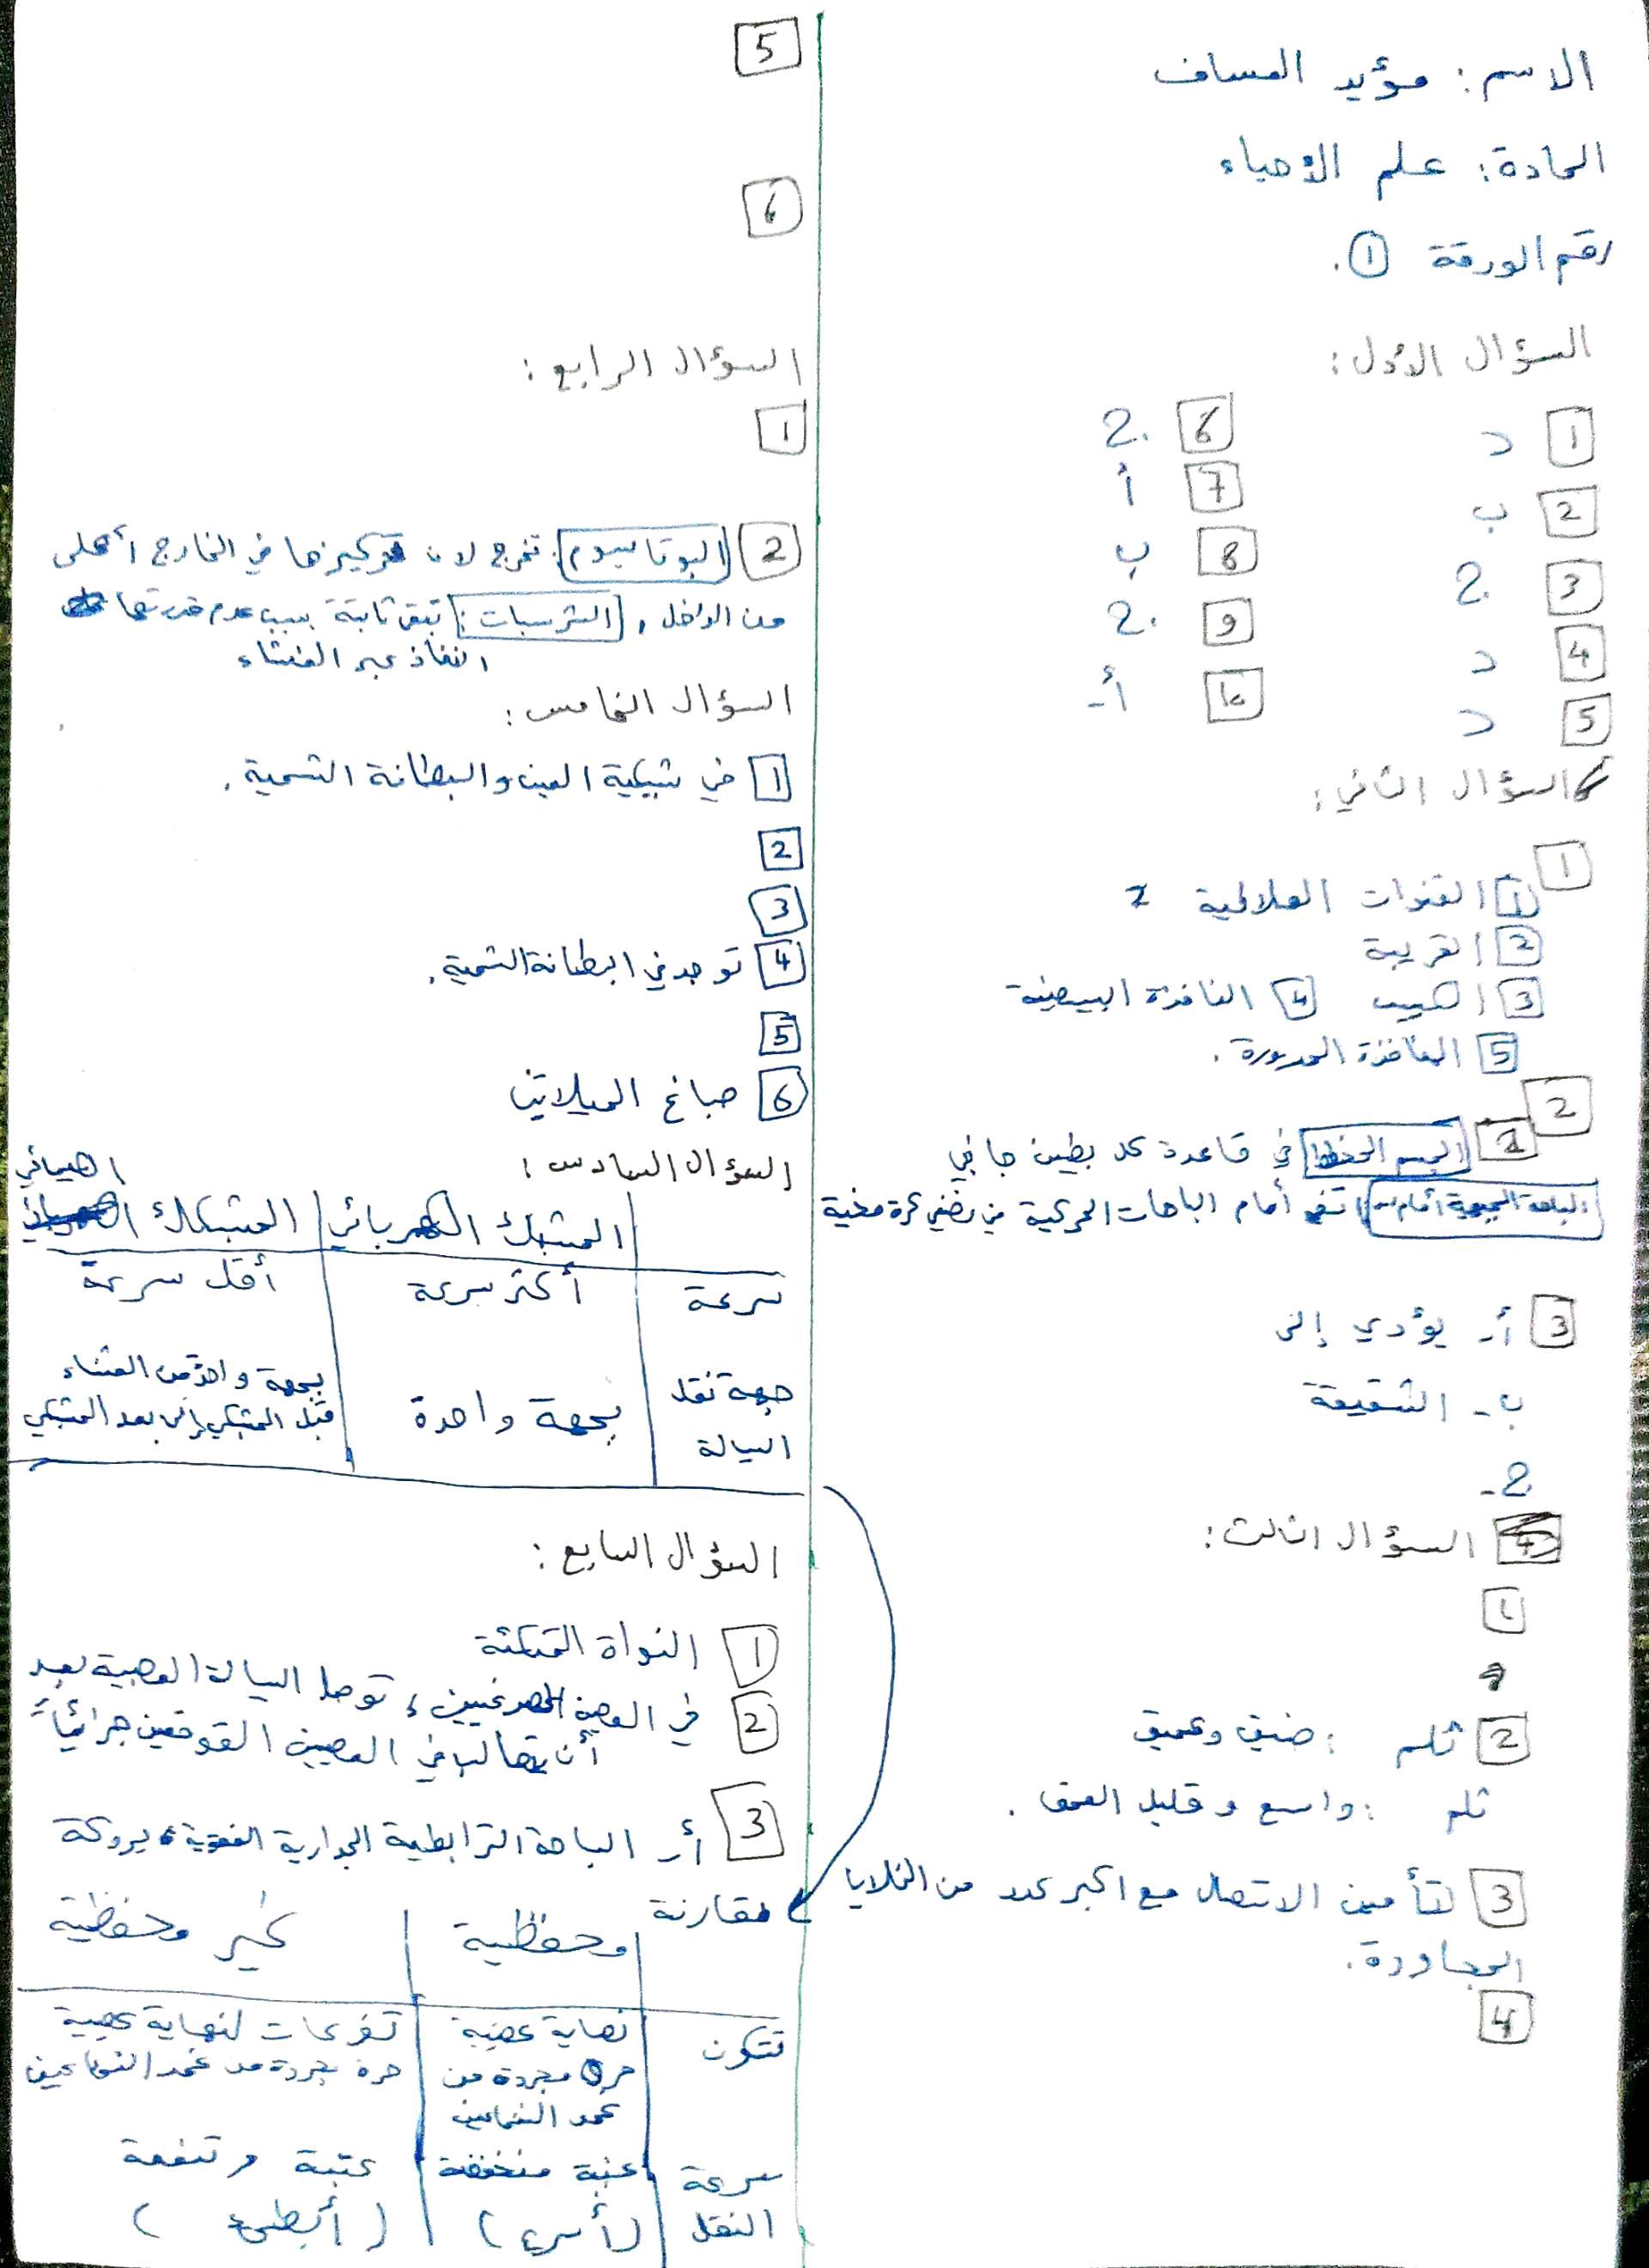 الاسم: مؤيد العساف
المادة: علم الأحياء
رقم الورقة ①.
السؤال الأول:
1 د
2 ب
3 ج
4 د
5 د
6 ج.
7 أ
8 ب
9 ج.
10 أ-
السؤال الثاني:
1
1 القنوات الهلالية
2 القريبة
3 الكييس 4 النافذة البيضية
5 النافذة المدورة.
2
1 الجسم المخطط في قاعدة كل بطين جانبي
الباحة أمام الحركية تقع أمام الباحات الحركية من نصفي كرة مخية
3 أ- يؤدي إلى
ب- الشقيقة
ج-
السؤال الثالث:
1
2 ثلم : ضيق وعميق
ثلم : واسع و قليل العمق.
3 لتأمين الاتصال مع أكبر عدد من الخلايا
المجاورة.
4
5
6
السؤال الرابع:
1
2 البوتاسيوم: تخرج لان تركيزها في الخارج أعلى
من الداخل، الشرسبات: تبقى ثابتة بسبب عدم قدرتها
النفاذ عبر الغشاء
السؤال الخامس:
1 في شبكية العين والبطانة الشمية.
2
3
4 توجد في البطانة الشمية.
5
6 صباغ الميلانين
السؤال السادس:
المشبك الكهربائي المشبك الكيميائي
سرعة أكثر سرعة أقل سرعة
جهة نقل بجهة واحدة بجهة واحدة من الغشاء
السيالة قبل المشبكي إلى بعد المشبكي
السؤال السابع:
1 النواة المتكئة
2 في العصبين، توصل السيالة العصبية بعد
أن في العصبين القوقعيين جزئياً
3 أ- الباحة الترابطية الجدارية القفوية، بروكة
مقارنة محفظية غير محفظية
تتكون نهاية عصبية تفرعات لنهاية عصبية
حرة مجردة من حرة مجردة من غمد النخاعين
غمد النخاعين
سرعة عتبة منخفضة عتبة مرتفعة
النقل (أسرع) (أبطئ)